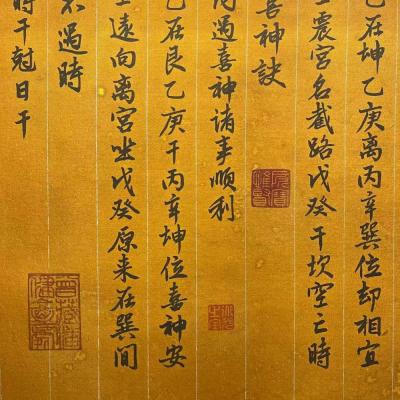 在坤乙庚离丙辛巽位却相宜
震宮名截路戊癸干坎空亡時
喜神訣
遇喜神诸事順利
在艮乙庚干丙辛坤位喜神安
遠向离宮坐戊癸原来在巽間
不遇時
時干尅日干